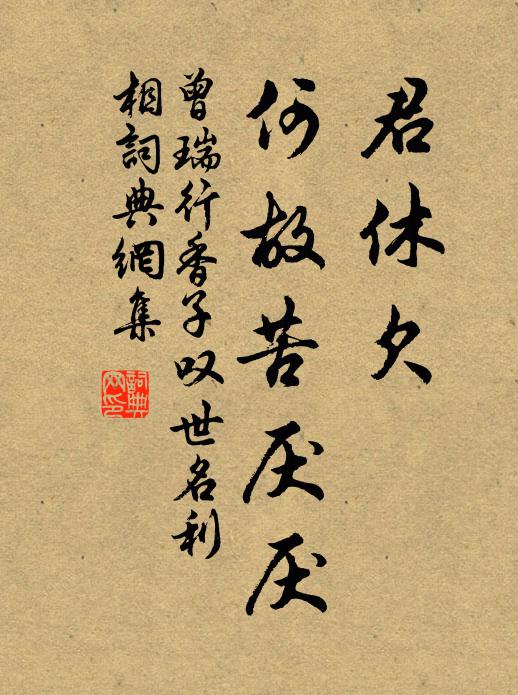 君休欠
何故苦厌厌
曾瑞行香子叹世名利
相詞典網集
詞典
网印